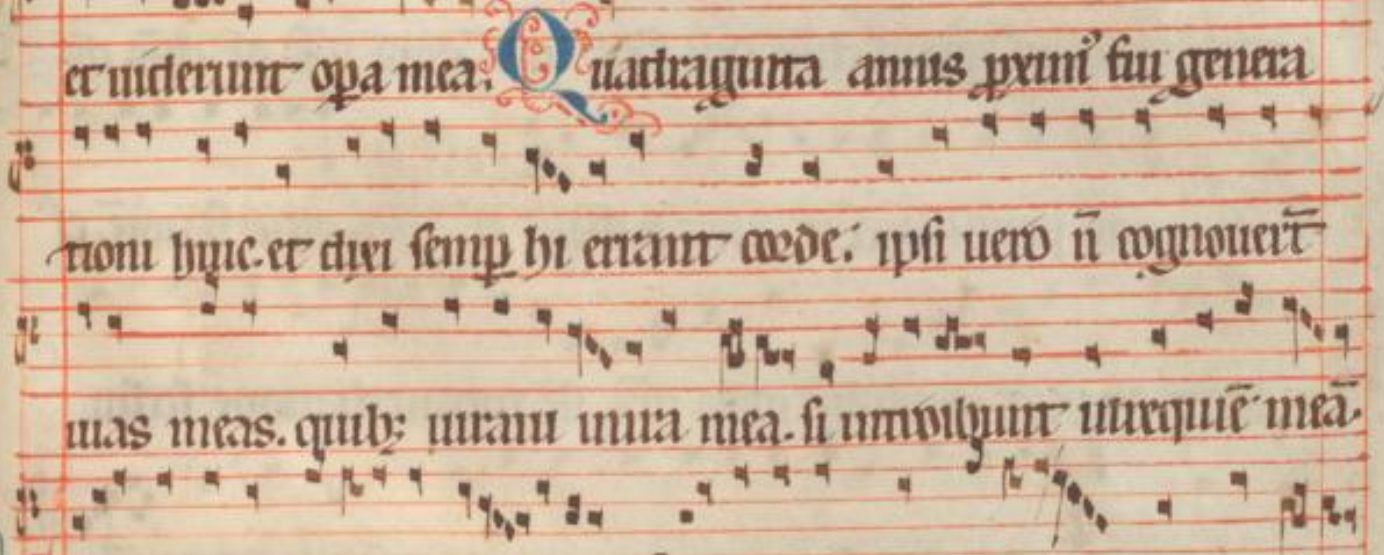 et uiderunt opa mea. Quadraginta annis pximꝰ fui genera
tioni huic. et dixi semp hi errant corde: ipsi uero ñ cognouert̄
uias meas. quibꝫ iuraui in ira mea. si introibunt in requiē meā.